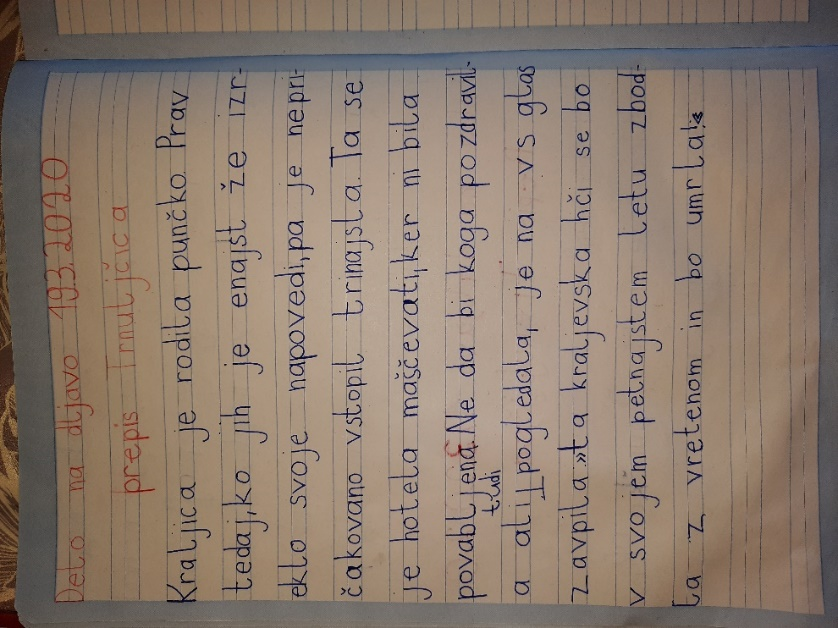 Delo na dljavo 19.3.2020
prepis Trnuljčica
Kraljica je rodila punčko. Prav
tedaj, ko jih je enajst že izr-
eklo svoje napovedi, pa je nepri-
čakovano vstopil trinajsta. Ta se
je hotela maščevati, ker ni bila
povabljena. Ne da bi koga pozdravil-
tudi
a ali pogledala, je na vs glas
zavpila: »ta kraljevska hči se bo
v svojem petnajstem letu zbod-
la z vretenom in bo umrla!«